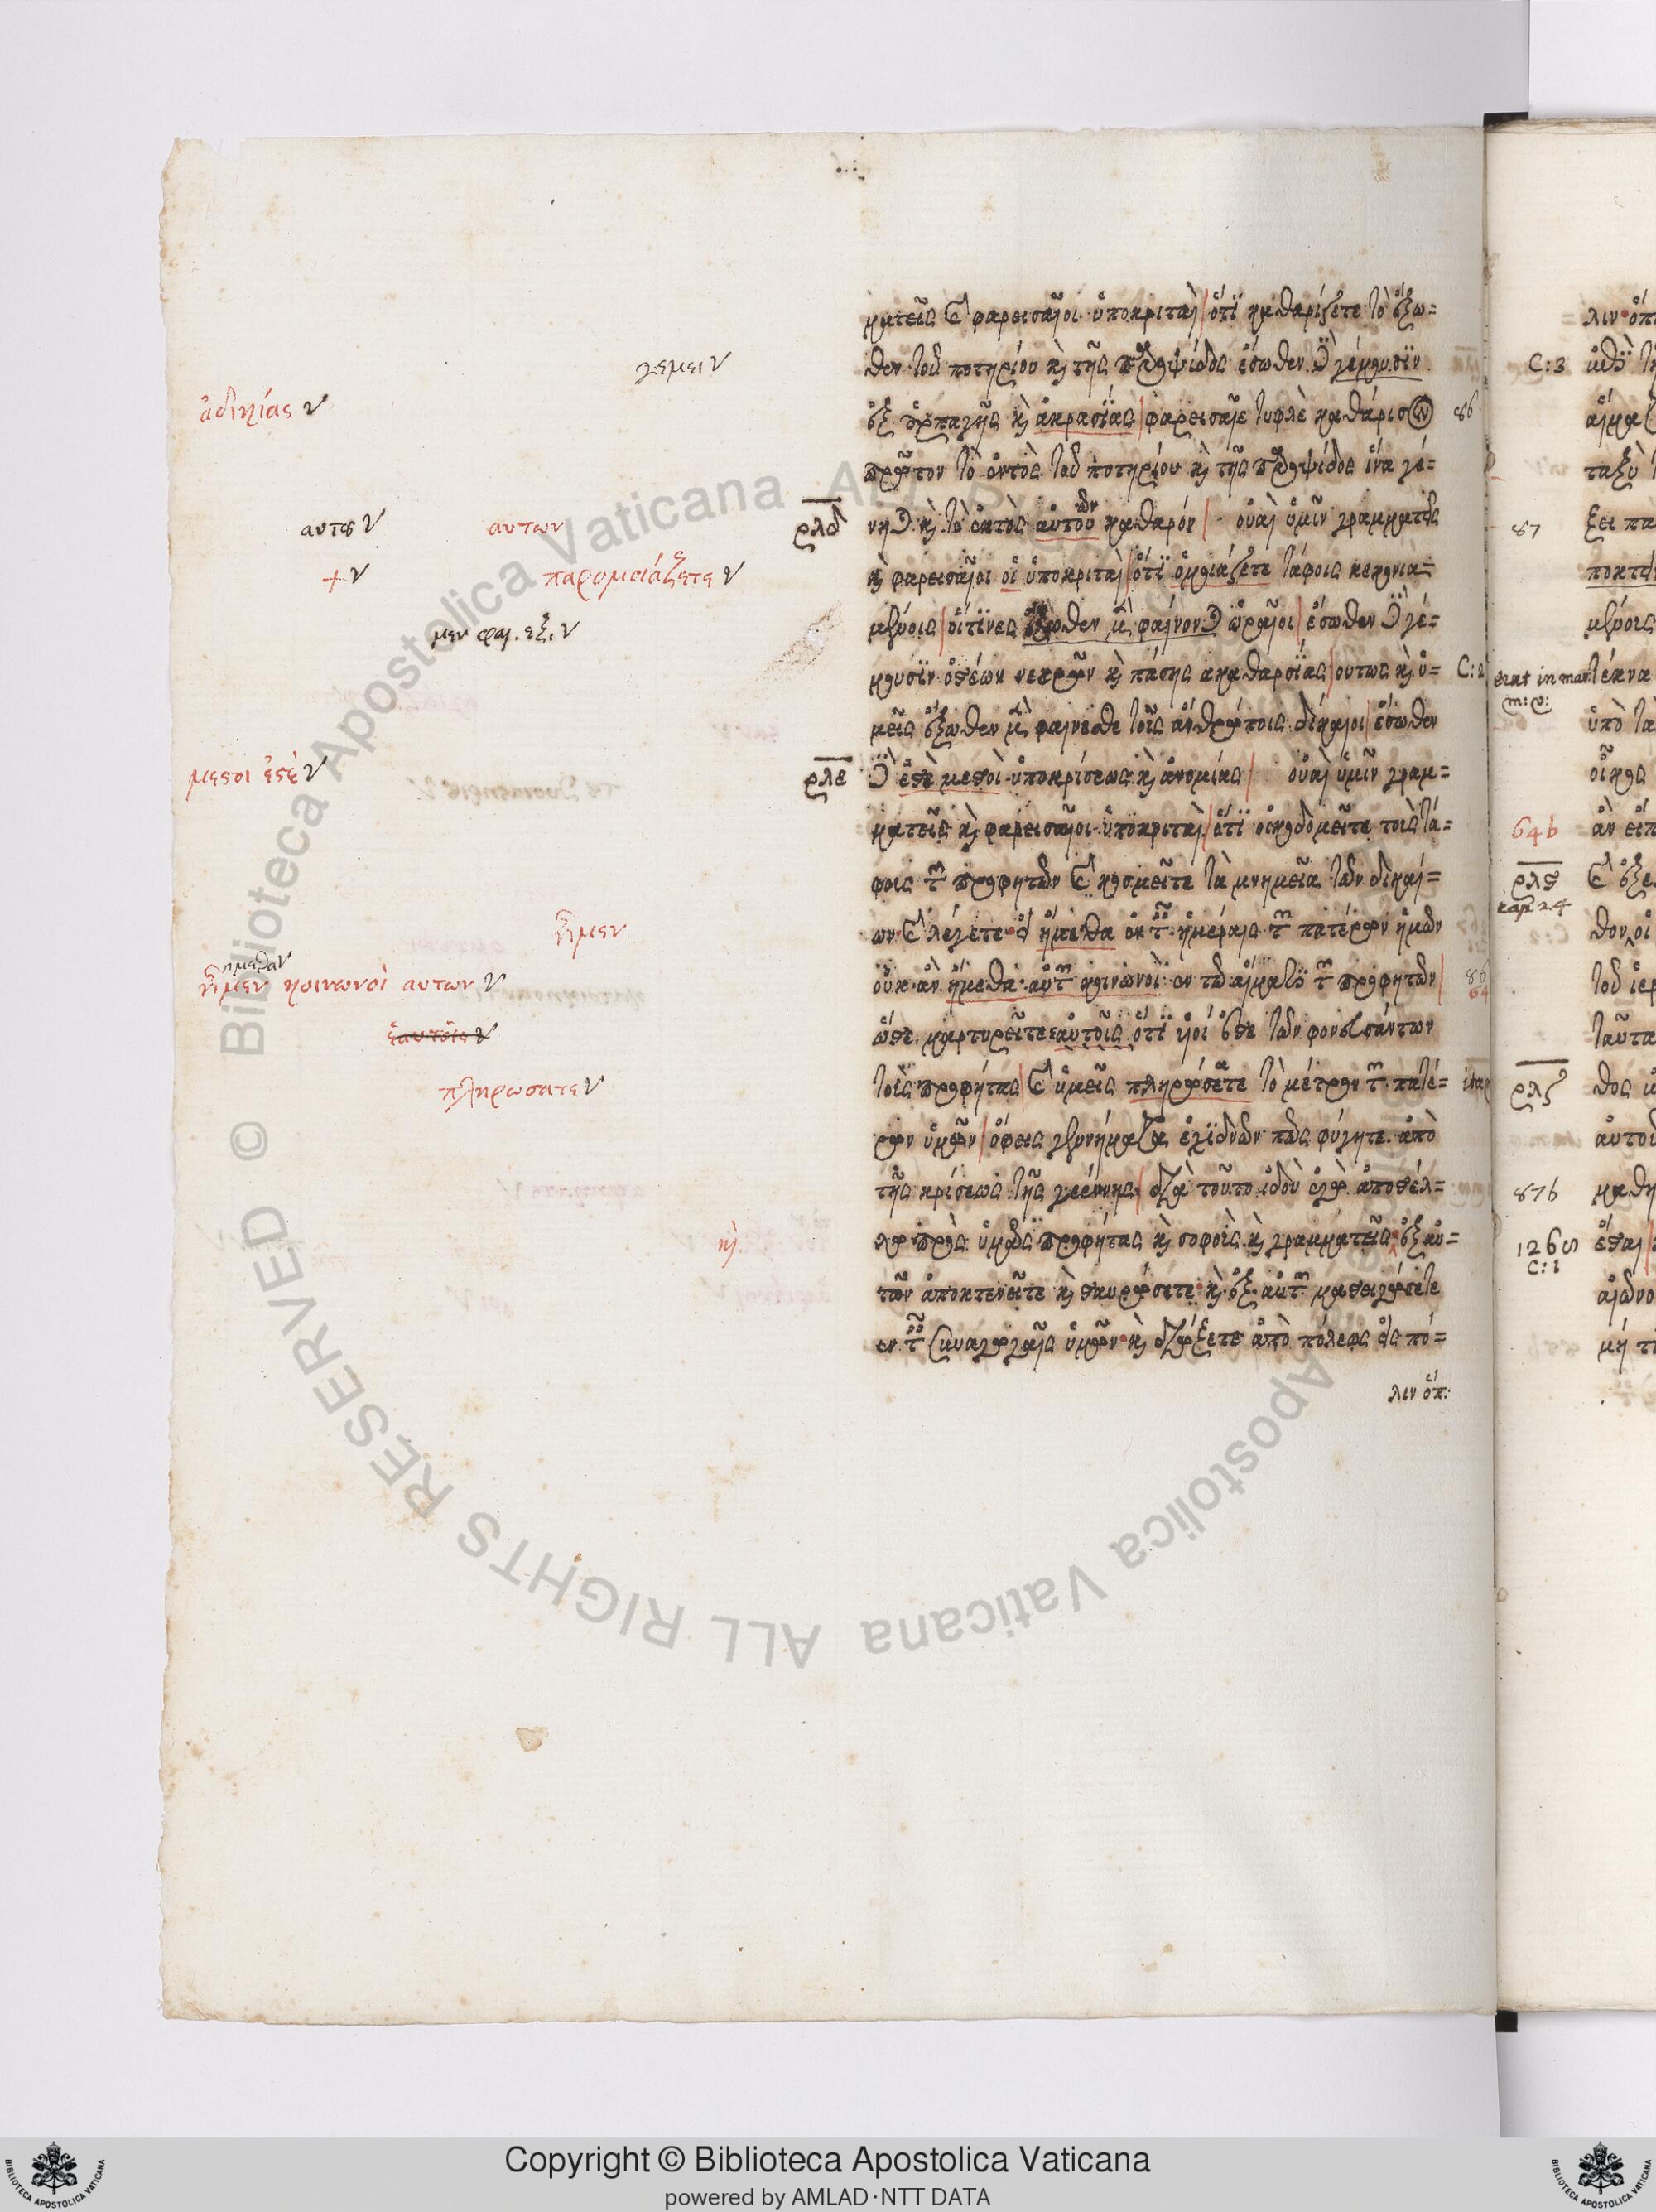 ματεῖς καὶ φαρεισαῖοι ὑποκριταὶ ὅτι καθαρίζετε τὸ ἔξω=
γεμει
θεν τοῦ ποτηρίου καὶ τῆς παροψίδος ἔσωθεν δὲ γέμουσιν
ἀδικίας
ἐξ ἁρπαγῆς καὶ ἀκρασίας φαρεισαῖε τυφλὲ καθάρισον
86
πρῶτον τὸ ἐντὸς τοῦ ποτηρίου καὶ τῆς παροψίδος ἵνα γέ=
αυτȣ αυτων
ρλδ
νηται καὶ τὸ ἐκτὸς αὐτοῦ καθαρόν οὐαὶ ὑμῖν γραμματεῖς
+ παρομοιάζετε
καὶ φαρεισαῖοι οἱ ὑποκριταὶ ὅτι ὁμοιάζετε τάφοις κεκονια=
μεν φαι. εξ.
μένοις οἵτινες ἔξωθεν μὲν φαίνονται ὡραῖοι ἔσωθεν δὲ γέ=
μουσιν ὀστέων νεκρῶν καὶ πάσης ακαθαρσίας ουτως καὶ ὑ=
C:2
μεῖς ἔξωθεν μὲν φαίνεσθε τοῖς ἀνθρώποις δίκαιοι ἔσωθεν
μεστοι ἐστὲ
ρλε
δὲ ἐστὲ μεστοὶ ὑποκρίσεως καὶ ἀνομίας οὐαὶ ὑμῖν γραμ=
ματεῖς καὶ φαρεισαῖοι ὑποκριταὶ ὅτι οἰκοδομεῖτε τοὶς τά=
φοις τῶν προφητῶν καὶ κοσμεῖτε τὰ μνημεῖα τῶν δικαί=
ἦμεν
ων καὶ λέγετε εἰ ἤμεθα ἐν ταῖς ἡμέραις τῶν πατέρων ἡμῶν
ημεθα
ἦμεν κοινωνοὶ αυτων
οὐκ ἂν ἤμεθα αὐτῶν κοινωνοὶ ἐν τῶ αἵματι τῶν προφητῶν
86
64
ἑαυτοῖς
ὥστε μαρτυρεῖτε ἑαυτοῖς ὅτι υἱοί ἐστε τῶν φονευσάντων
πληρωσατε
τοὶς προφήτας καὶ ὑμεῖς πληρώσετε τὸ μέτρον τῶν πατέ=
ρων ὑμῶν ὄφεις γεννήματα ἐχιδνῶν πῶς φύγητε ἀπὸ
τῆς κρίσεως τῆς γεέννης διὰ τοῦτο ἰδοὺ ἐγὼ ἀποστέλ=
καὶ
λω πρὸς ὑμᾶς προφήτας καὶ σοφοὶς καὶ γραμματεῖς ἐξ αὐ=
τῶν ἀποκτενεῖτε καὶ σταυρώσετε καὶ ἐξ αὐτῶν μαστιγώσετε
ἐν ταῖς συναγωγαῖς ὑμῶν καὶ διώξετε ἀπὸ πόλεως εἰς πό=
λιν ὅπ:
λιν ὅπ
C:3
87
ξει πα
erat in mar. τέκνα
ὑπὸ τα
64b
ἂν εἴπ
ρλϛ
cap. 24
ρλζ
αὐτοῦ
87b
μαθη
126
C:1
ἔσται
αἰῶνο
μή τι
Biblioteca Apostolica Vaticana ALL RIGHTS RESERVED ©
Copyright © Biblioteca Apostolica Vaticana
powered by AMLAD·NTT DATA
BIBLIOTECA APOSTOLICA VATICANA
BIBLIOTECA APOSTOLICA VATICANA